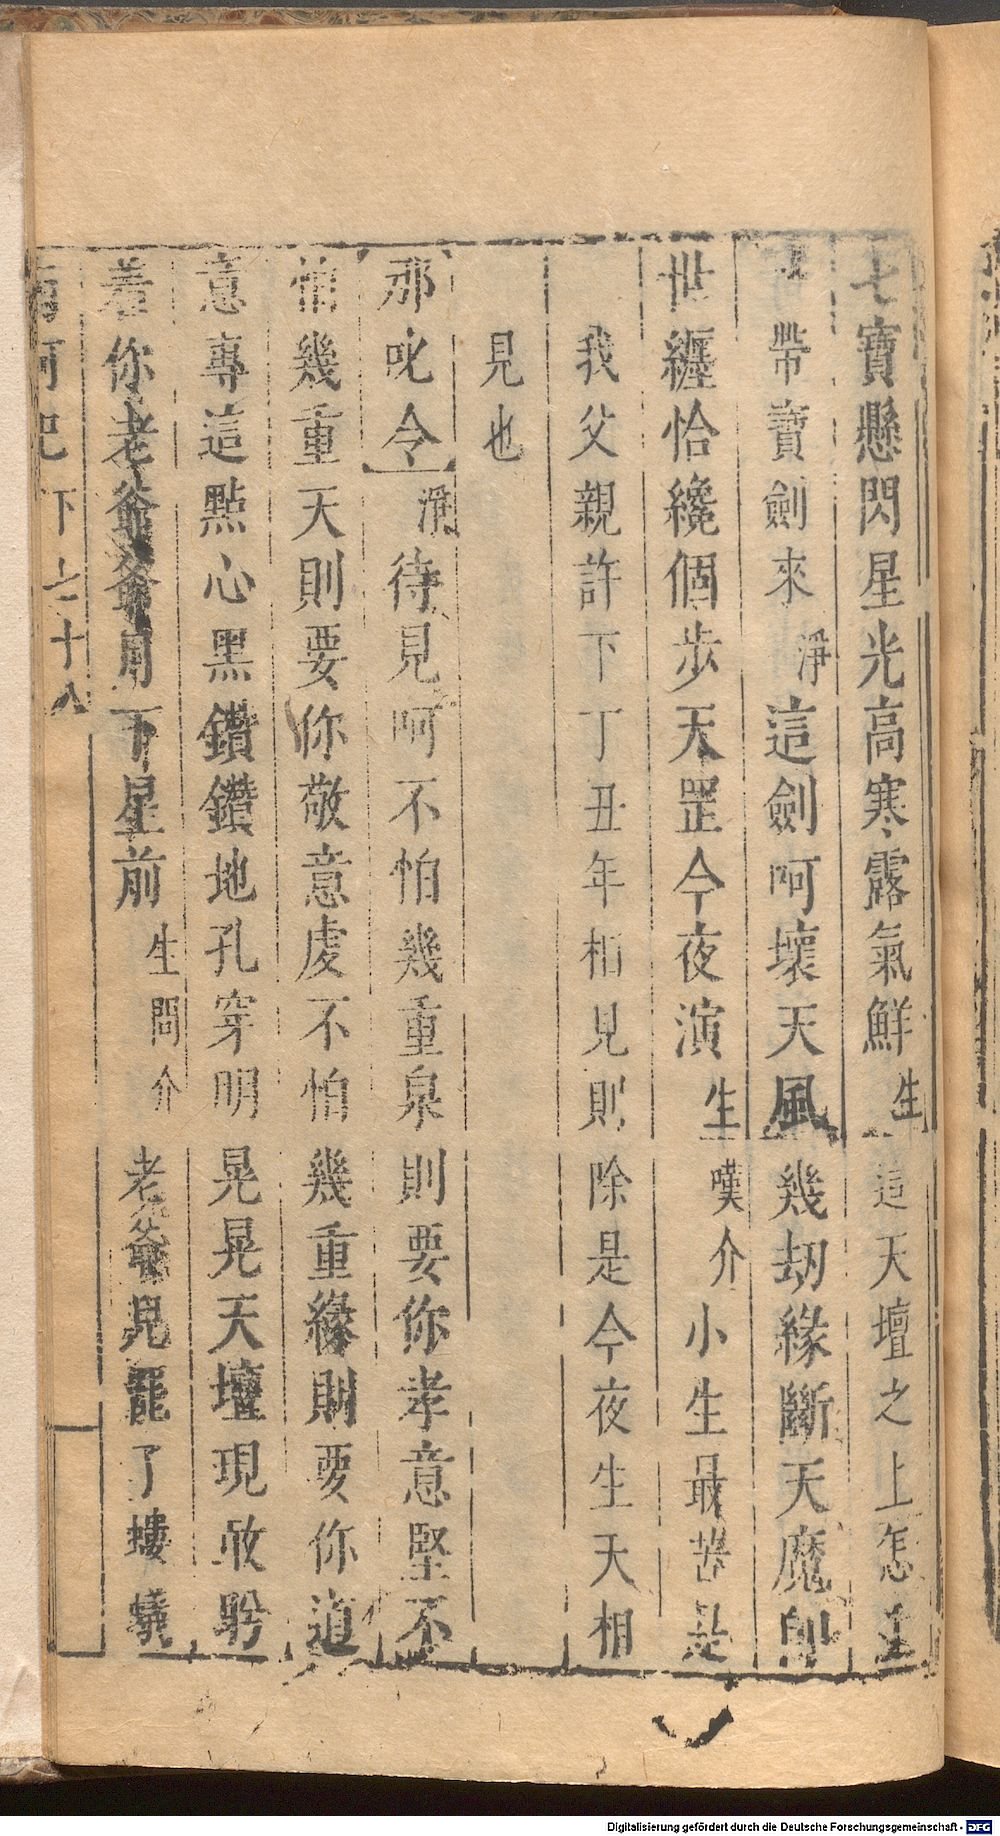 七寶懸閃星光高寒露氣鮮生這天壇之上怎生
帶寶劍來淨這劍呵壞天風幾劫緣斷天魔即
世纏恰纔個步天罡今夜演生嘆介小生最苦是
我父親許下丁丑年相見則除是今夜生天相
見也
那叱令淨待見呵不怕幾重泉則要你孝意堅不
怕幾重天則要你敬意虔不怕幾重緣則要你道
意專這點心黑鑽鑽地孔穿明晃晃天壇現敢盻
着你老爺爺月下星前生問介老爺見罷了螻蟻
南柯記下七十八
Digitalisierung gefördert durch die Deutsche Forschungsgemeinschaft - DFG